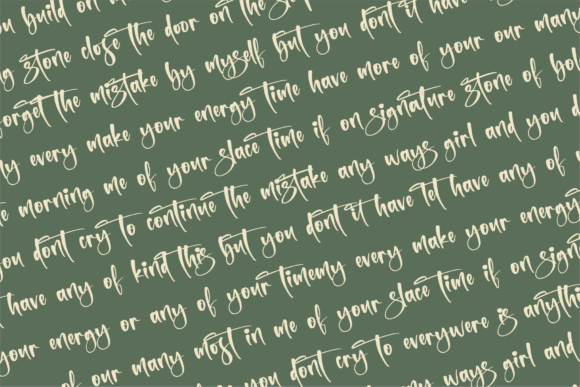 u build on m
ng stone close the door on the
forget the mistake by myself but you dont it have
my every make your energy time have more of your our many
e morning me of your slace time if on signature stone of bol
you dont cry to continue the mistake any ways girl and you d
have any of kind this but you dont it have let have any of
your energy or any of your timemy every make your energy
of our many most in me of your slace time if on sign
you dont cry to everywere is anythi
y ways girl and